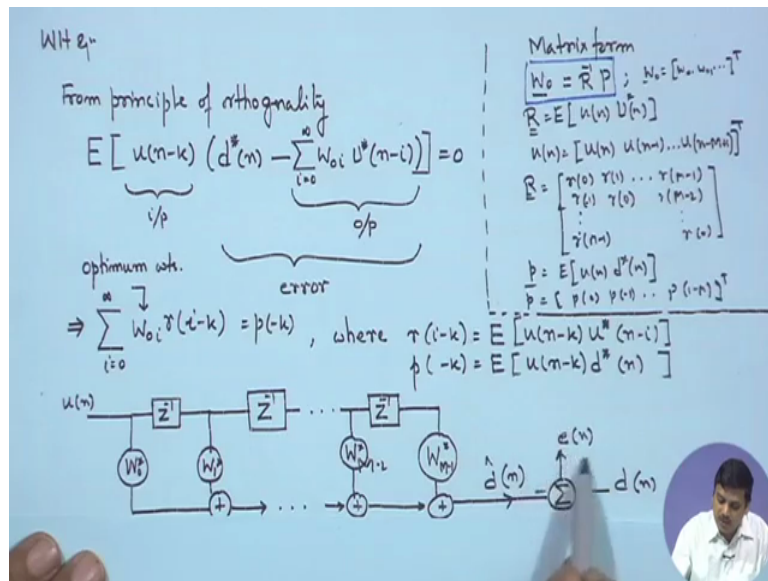 WH Eqn
From principle of orthognality
E [ u(n-k) (d*(n) - ∑ W₀ᵢ U*(n-i)) ] = 0
i=0
∞
i/p
o/p
error
optimum wts.
⇒ ∑ W₀ᵢ r(i-k) = p(-k), where r(i-k) = E [ u(n-k) u*(n-i) ]
i=0
∞
p(-k) = E [ u(n-k) d*(n) ]
Matrix form
W₀ = R⁻¹ P ; W₀ = [w₀₀ w₀₁, ...]ᵀ
R = E [ u(n) uᴴ(n) ]
u(n) = [ u(n) u(n-1) ... u(n-M+1) ]ᵀ
R = [ r(0) r(1) ... r(M-1)
r(1) r(0) r(M-2)
⋮ ⋮
r(M-1) r(0) ]
p = E [ u(n) d*(n) ]
p = [ p(0) p(-1) .. p(1-M) ]ᵀ
u(n) Z⁻¹ Z⁻¹ ... Z⁻¹
W₀* W₁* W*M-2 W*M-1
+ ... + +
d̂(n) - Σ d(n)
e(n)